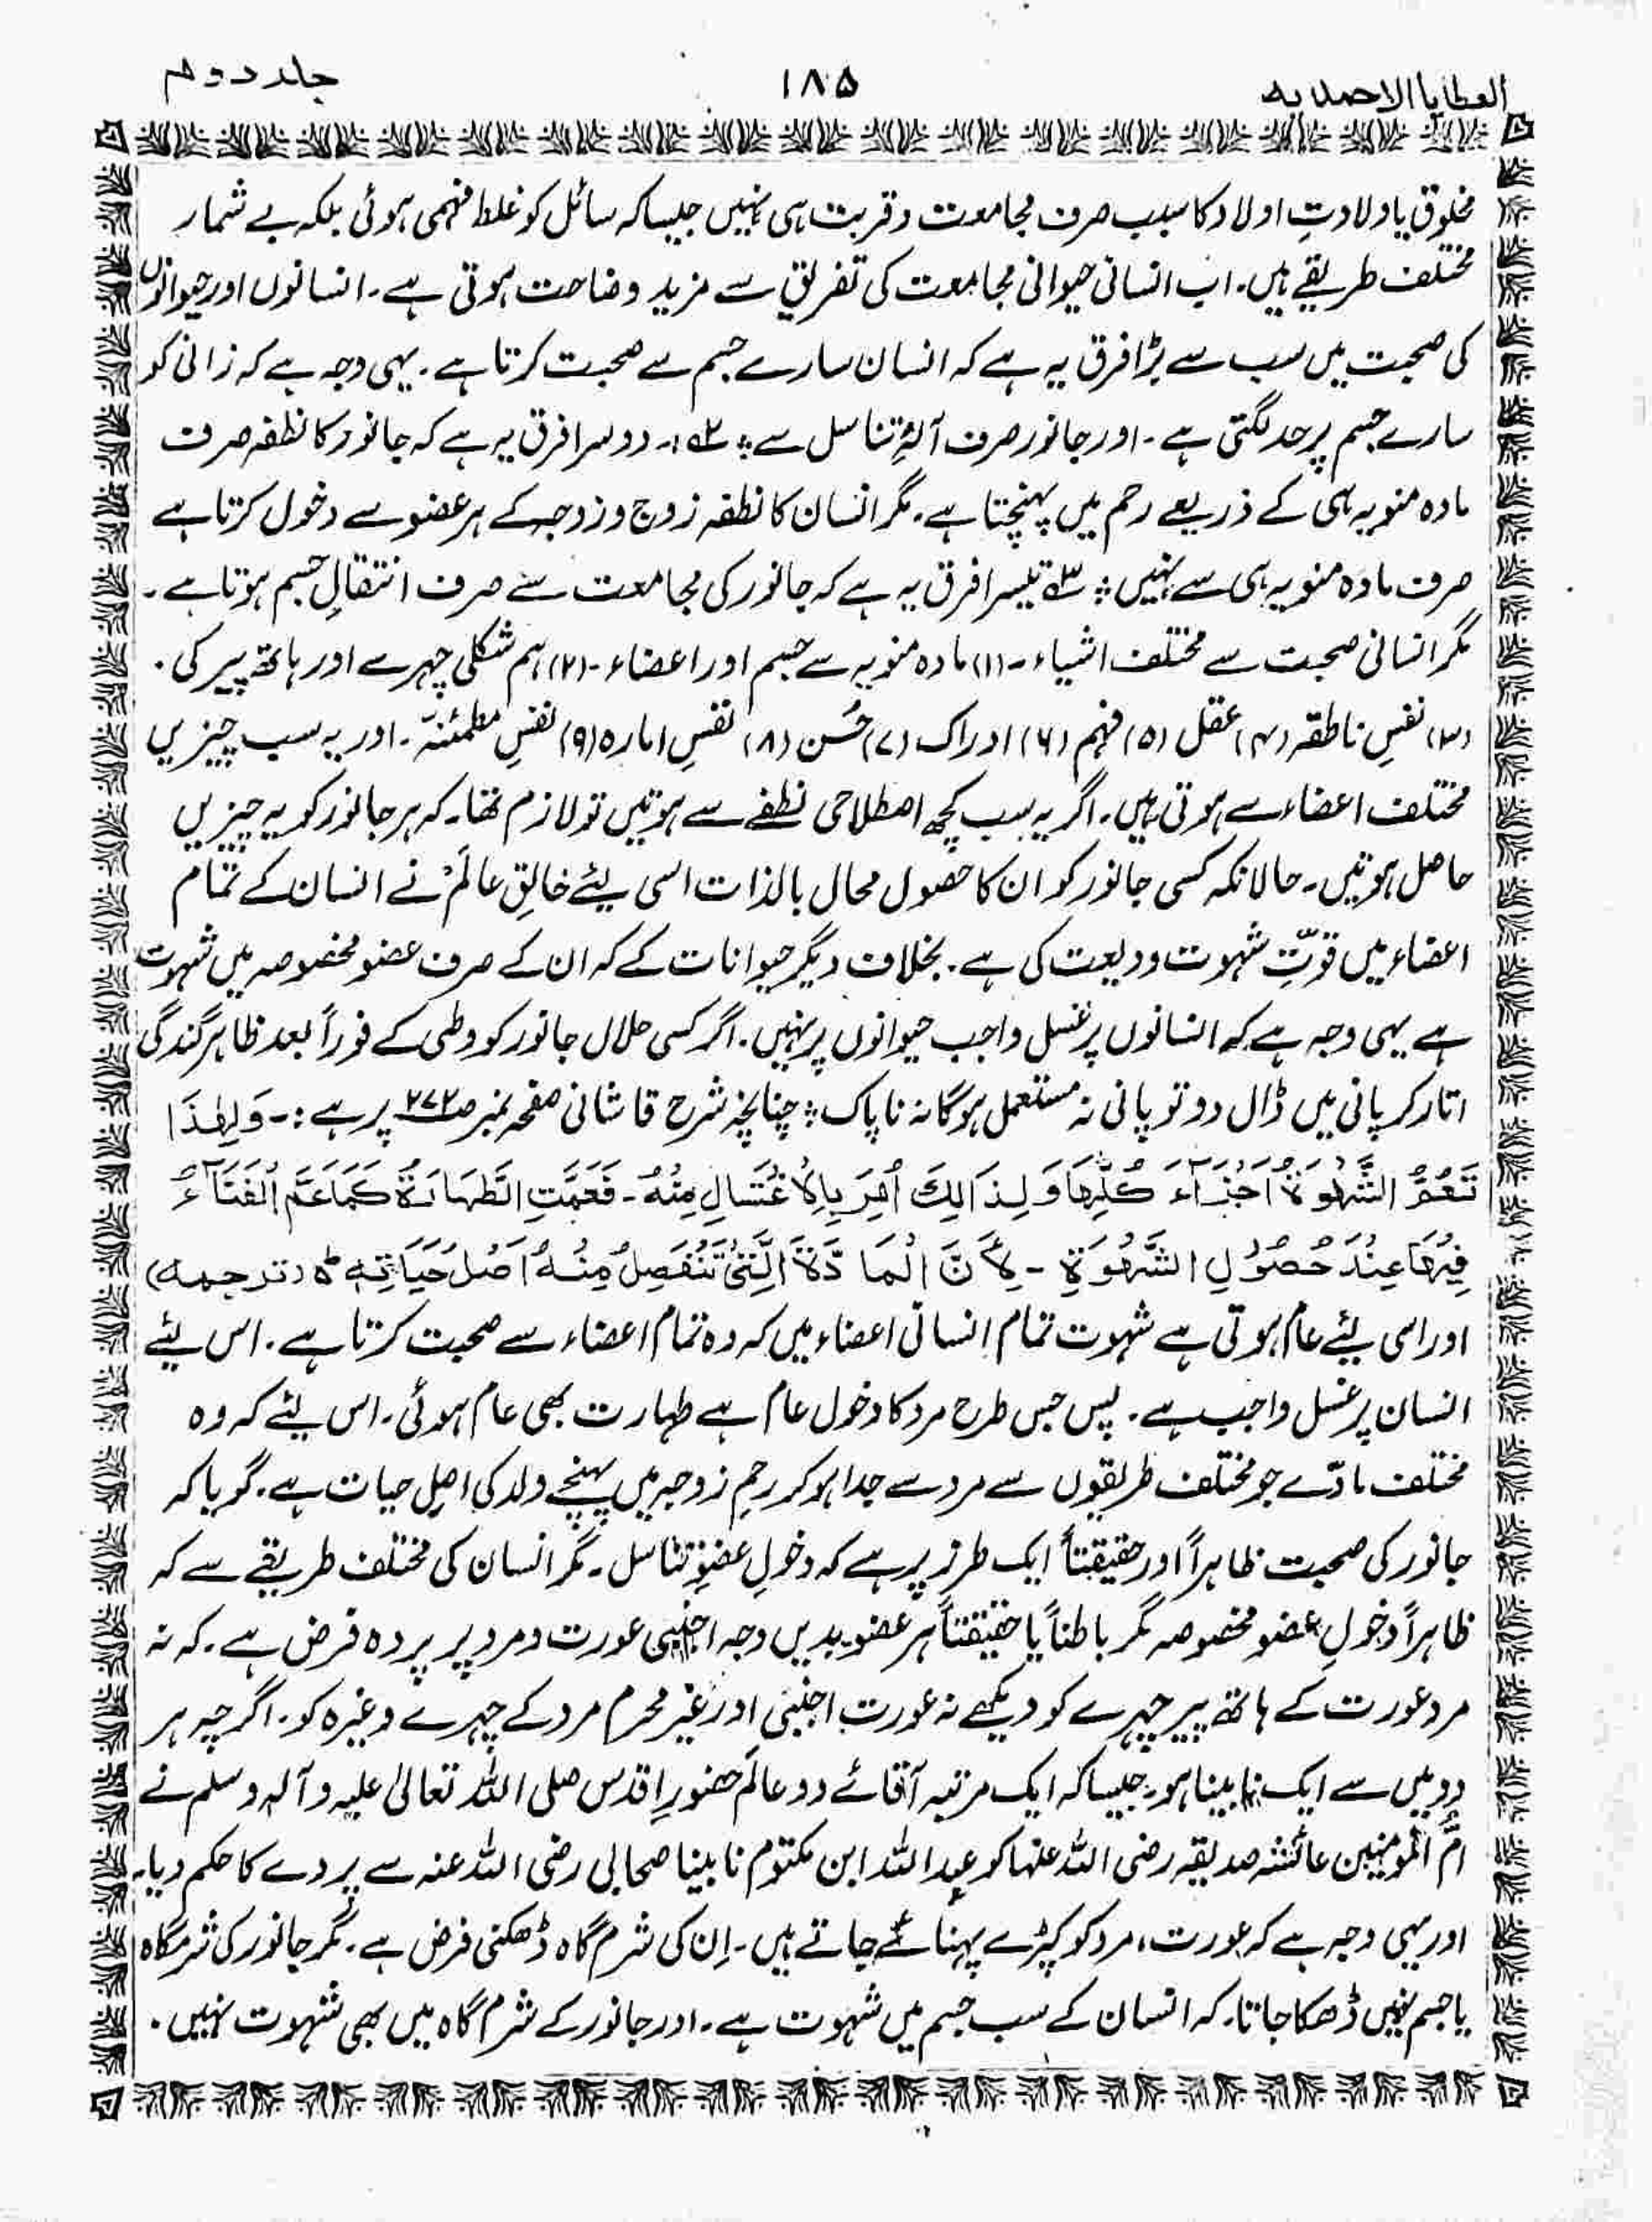 العطایا الاحمدیہ ۱۸۵ جلد دوم
مخلوق یا ولادتِ اولاد کا سبب صرف مجامعت و قربت ہی نہیں جیسا کہ سائل کو غلط فہمی ہوئی بلکہ بے شمار
مختلف طریقے ہیں۔ اب انسانی حیوانی مجامعت کی تفریق سے مزید وضاحت ہوتی ہے۔ انسانوں اور حیوانوں
کی صحبت میں سب سے بڑا فرق یہ ہے کہ انسان سارے جسم سے صحبت کرتا ہے۔ یہی وجہ ہے کہ زانی کو
سارے جسم پر حد لگتی ہے۔ اور جانور صرف آلۂ تناسل سے ؞ ۲؎:۔ دوسرا فرق یہ ہے کہ جانور کا نطفہ صرف
مادہ منویہ ہی کے ذریعے رحم میں پہنچتا ہے۔ مگر انسان کا نطفہ زوج و زوجہ کے ہر عضو سے دخول کرتا ہے
صرف مادہ منویہ ہی سے نہیں ؞ ۳؎ تیسرا فرق یہ ہے کہ جانور کی مجامعت سے صرف انتقالِ جسم ہوتا ہے۔
مگر انسانی صحبت سے مختلف اشیاء۔ (۱) مادہ منویہ سے جسم اور اعضاء۔ (۲) ہم شکلی چہرے اور ہاتھ پیر کی۔
(۳) نفسِ ناطقہ (۴) عقل (۵) فہم (۶) ادراک (۷) حُسن (۸) نفسِ امارہ (۹) نفسِ مطمئنّہ۔ اور یہ سب چیزیں
مختلف اعضاء سے ہوتی ہیں۔ اگر یہ سب کچھ اصطلاحی نطفے سے ہوتیں تو لازم تھا۔ کہ ہر جانور کو یہ چیزیں
حاصل ہوتیں۔ حالانکہ کسی جانور کو ان کا حصول محال بالذات اسی لیئے خالِق عالَمْ نے انسان کے تمام
اعضاء میں قوتِّ شہوت ودیعت کی ہے۔ بخلاف دیگر حیوانات کے کہ ان کے صرف عضو مخصوصہ میں شہوت
ہے یہی وجہ ہے کہ انسانوں پر غسل واجب حیوانوں پر نہیں۔ اگر کسی حلال جانور کو وطی کے فوراً بعد ظاہر گندگی
اتار کر پانی میں ڈال دو تو پانی نہ مستعمل ہوگا نہ ناپاک ؞ چنانچہ شرح قاشانی صفحہ نمبر ص۲۷۲ پر ہے :۔ وَلِهٰذَا
تَعُمُّ الشَّهْوَةُ اَجْزَآءَ كُلِّهَا وَلِذَالِكَ اُمِرَ بِالْاِغْتِسَالِ مِنْهُ۔ فَعَمَّتِ الطَّهَارَةُ كَمَا عَمَّ الْفَنَآءُ
فِيْهَا عِنْدَ حُصُوْلِ الشَّهْوَةِ۔ لِاَنَّ الْمَادَّةَ الَّتِيْ تَنْفَصِلُ مِنْهُ اَصْلُ حَيَاتِهٖ ؕ (ترجمہ)
اور اسی لیئے عام ہوتی ہے شہوت تمام انسانی اعضاء میں کہ وہ تمام اعضاء سے صحبت کرتا ہے۔ اس لیئے
انسان پر غسل واجب ہے۔ پس جس طرح مرد کا دخول عام ہے طہارت بھی عام ہوئی۔ اس لیئے کہ وہ
مختلف مادّے جو مختلف طریقوں سے مرد سے جدا ہو کر رحمِ زوجہ میں پہنچے ولد کی اصل حیات ہے۔ گویا کہ
جانور کی صحبت ظاہراً اور حقیقتاً ایک طرز پر ہے کہ دخولِ عضوِ تناسل۔ مگر انسان کی مختلف طریقے سے کہ
ظاہراً دخولِ عضو مخصوصہ مگر باطناً یا حقیقتاً ہر عضو۔ بدیں وجہ اجنبی عورت و مرد پر پردہ فرض ہے۔ کہ نہ
مرد عورت کے ہاتھ پیر چہرے کو دیکھے نہ عورت اجنبی اور غیر محرم مرد کے چہرے وغیرہ کو۔ اگرچہ ہر
دو میں سے ایک نابینا ہو۔ جیسا کہ ایک مرتبہ آقائے دو عالَم حضورِ اقدس صلی اللہ تعالیٰ علیہ وآلہ وسلم نے
امُّ المومنین عائشہ صدیقہ رضی اللہ عنہا کو عبد اللہ ابن مکتوم نابینا صحابی رضی اللہ عنہ سے پردے کا حکم دیا۔
اور یہی وجہ ہے کہ عورت، مرد کو کپڑے پہنائے جاتے ہیں۔ اِن کی شرم گاہ ڈھکنی فرض ہے۔ مگر جانور کی شرمگاہ
یا جسم نہیں ڈھکا جاتا۔ کہ انسان کے سب جسم میں شہوت ہے۔ اور جانور کے شرم گاہ میں بھی شہوت نہیں۔